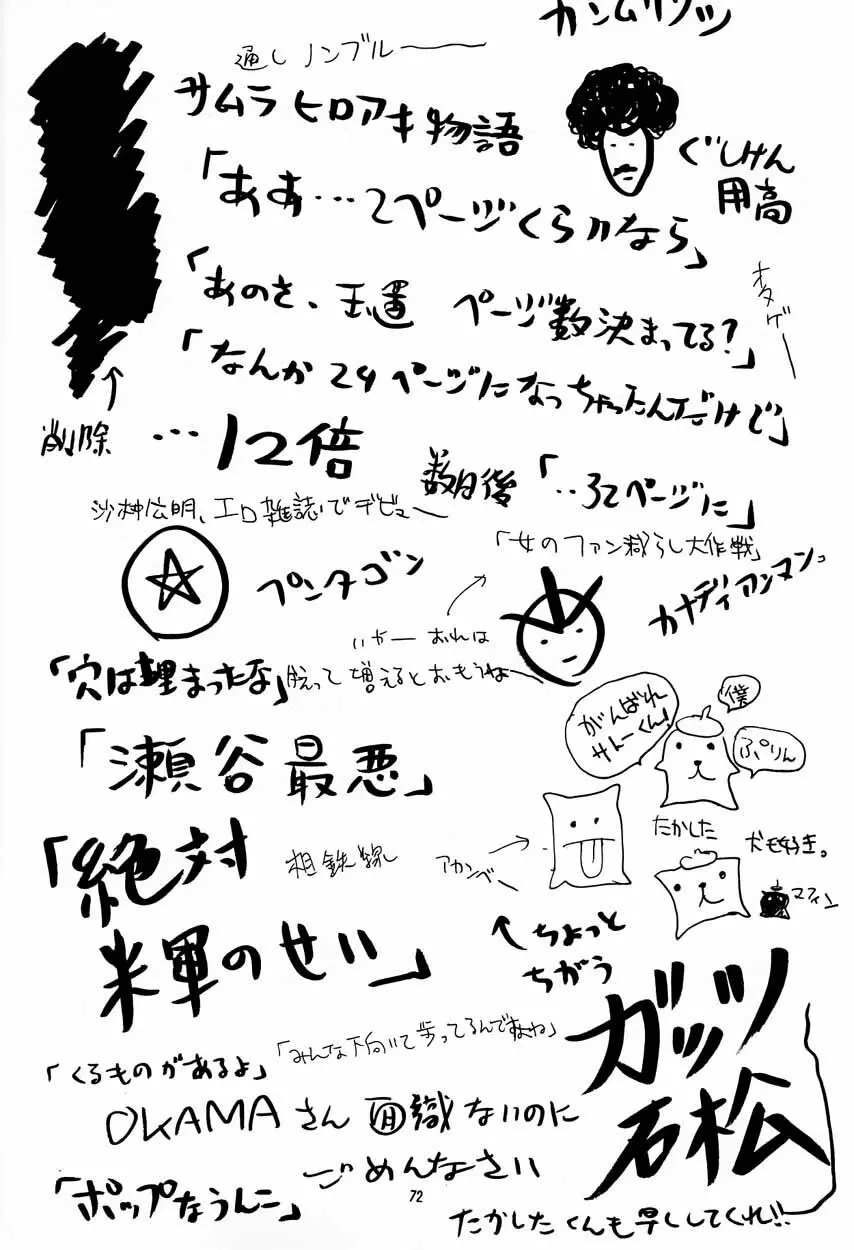 通しノンブル──
サムラヒロアキ物語
ぐしけん
用高
「ああ…2ページくらいなら」
「あのさ、 ページ数決まってる?」
オタゲー
「なんか24ページになっちゃったんだけど」
削除
…12倍
数日後「‥32ページに」
沙村広明、エロ雑誌でデビュー
「女のファン減らし大作戦」
ペンタゴン
カナディアンマン。
いやー おれは
「穴は埋まったな」
脱って増えるとおもうね
がんばれ
サトーくん!
僕
ぷりん
「瀬谷最悪」
たかした
犬も好き。
アカンベー
マフィン
「絶対
相鉄線
米軍のせい」
←ちょっと
ちがう
ガッツ
石松
「みんな下向いて歩ってるんですよね」
「くるものがあるよ」
OKAMAさん 面識ないのに
ごめんなさい
「ポップなうんこ」
72
たかしたくんも早くしてくれ!!